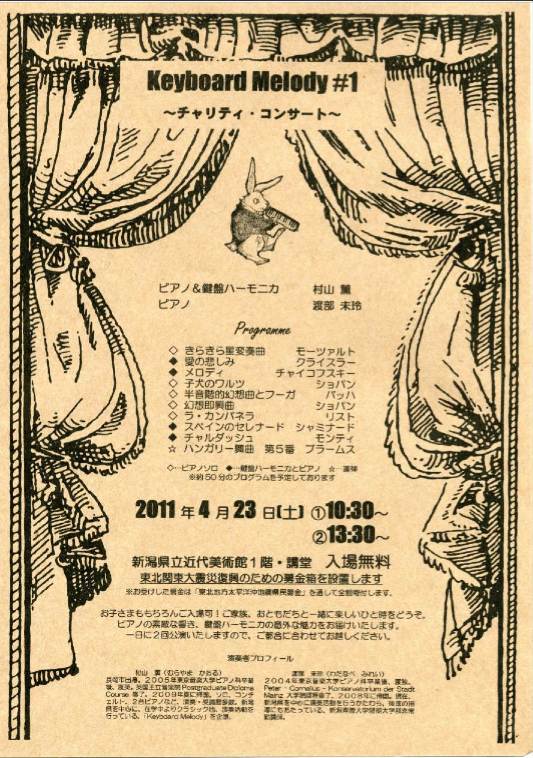 Keyboard Melody #1
～チャリティ・コンサート～
ピアノ＆鍵盤ハーモニカ　村山 薫
ピアノ　渡部 未玲
Programme
◇ きらきら星変奏曲　モーツァルト
◆ 愛の悲しみ　クライスラー
◆ メロディ　チャイコフスキー
◇ 子犬のワルツ　ショパン
◇ 半音階的幻想曲とフーガ　バッハ
◇ 幻想即興曲　ショパン
◇ ラ・カンパネラ　リスト
◆ スペインのセレナード　シャミナード
◆ チャルダッシュ　モンティ
☆ ハンガリー舞曲　第５番　ブラームス
◇…ピアノソロ　◆…鍵盤ハーモニカとピアノ　☆…連弾
※約50分のプログラムを予定しております
2011 年 4 月 23 日(土) ①10:30～
②13:30～
新潟県立近代美術館１階・講堂　入場無料
東北関東大震災復興のための募金箱を設置します
※お受けした現金は「東北地方太平洋沖地震県民募金」を通して全額寄付します。
お子さまももちろんご入場可！ご家族、おともだちと一緒に楽しいひと時をどうぞ。
ピアノの素敵な響き、鍵盤ハーモニカの意外な魅力をお届けいたします。
一日に２回公演いたしますので、ご都合に合わせてお越しください。
演奏者プロフィール
村山 薫（むらやま かおる）
長岡市出身。2005年東京音楽大学ピアノ科卒業
後、渡英。英国王立音楽院 Postgraduate Diploma
Course 修了。2009年夏に帰国。ソロ、コンチ
ェルト、2台ピアノなど、演奏・受講歴多数。新潟
県を中心に、在学中よりクラシック他、演奏活動を
行っている。「Keyboard Melody」を企画。
渡部 未玲（わたなべ みれい）
2004年東京音楽大学ピアノ科卒業後、渡独。
Peter - Cornelius - Konservatorium der Stadt
Mainz 大学院課程修了。2008年に帰国。現在、
新潟県を中心に演奏活動を行うかたわら、後進の指
導にもあたっている。